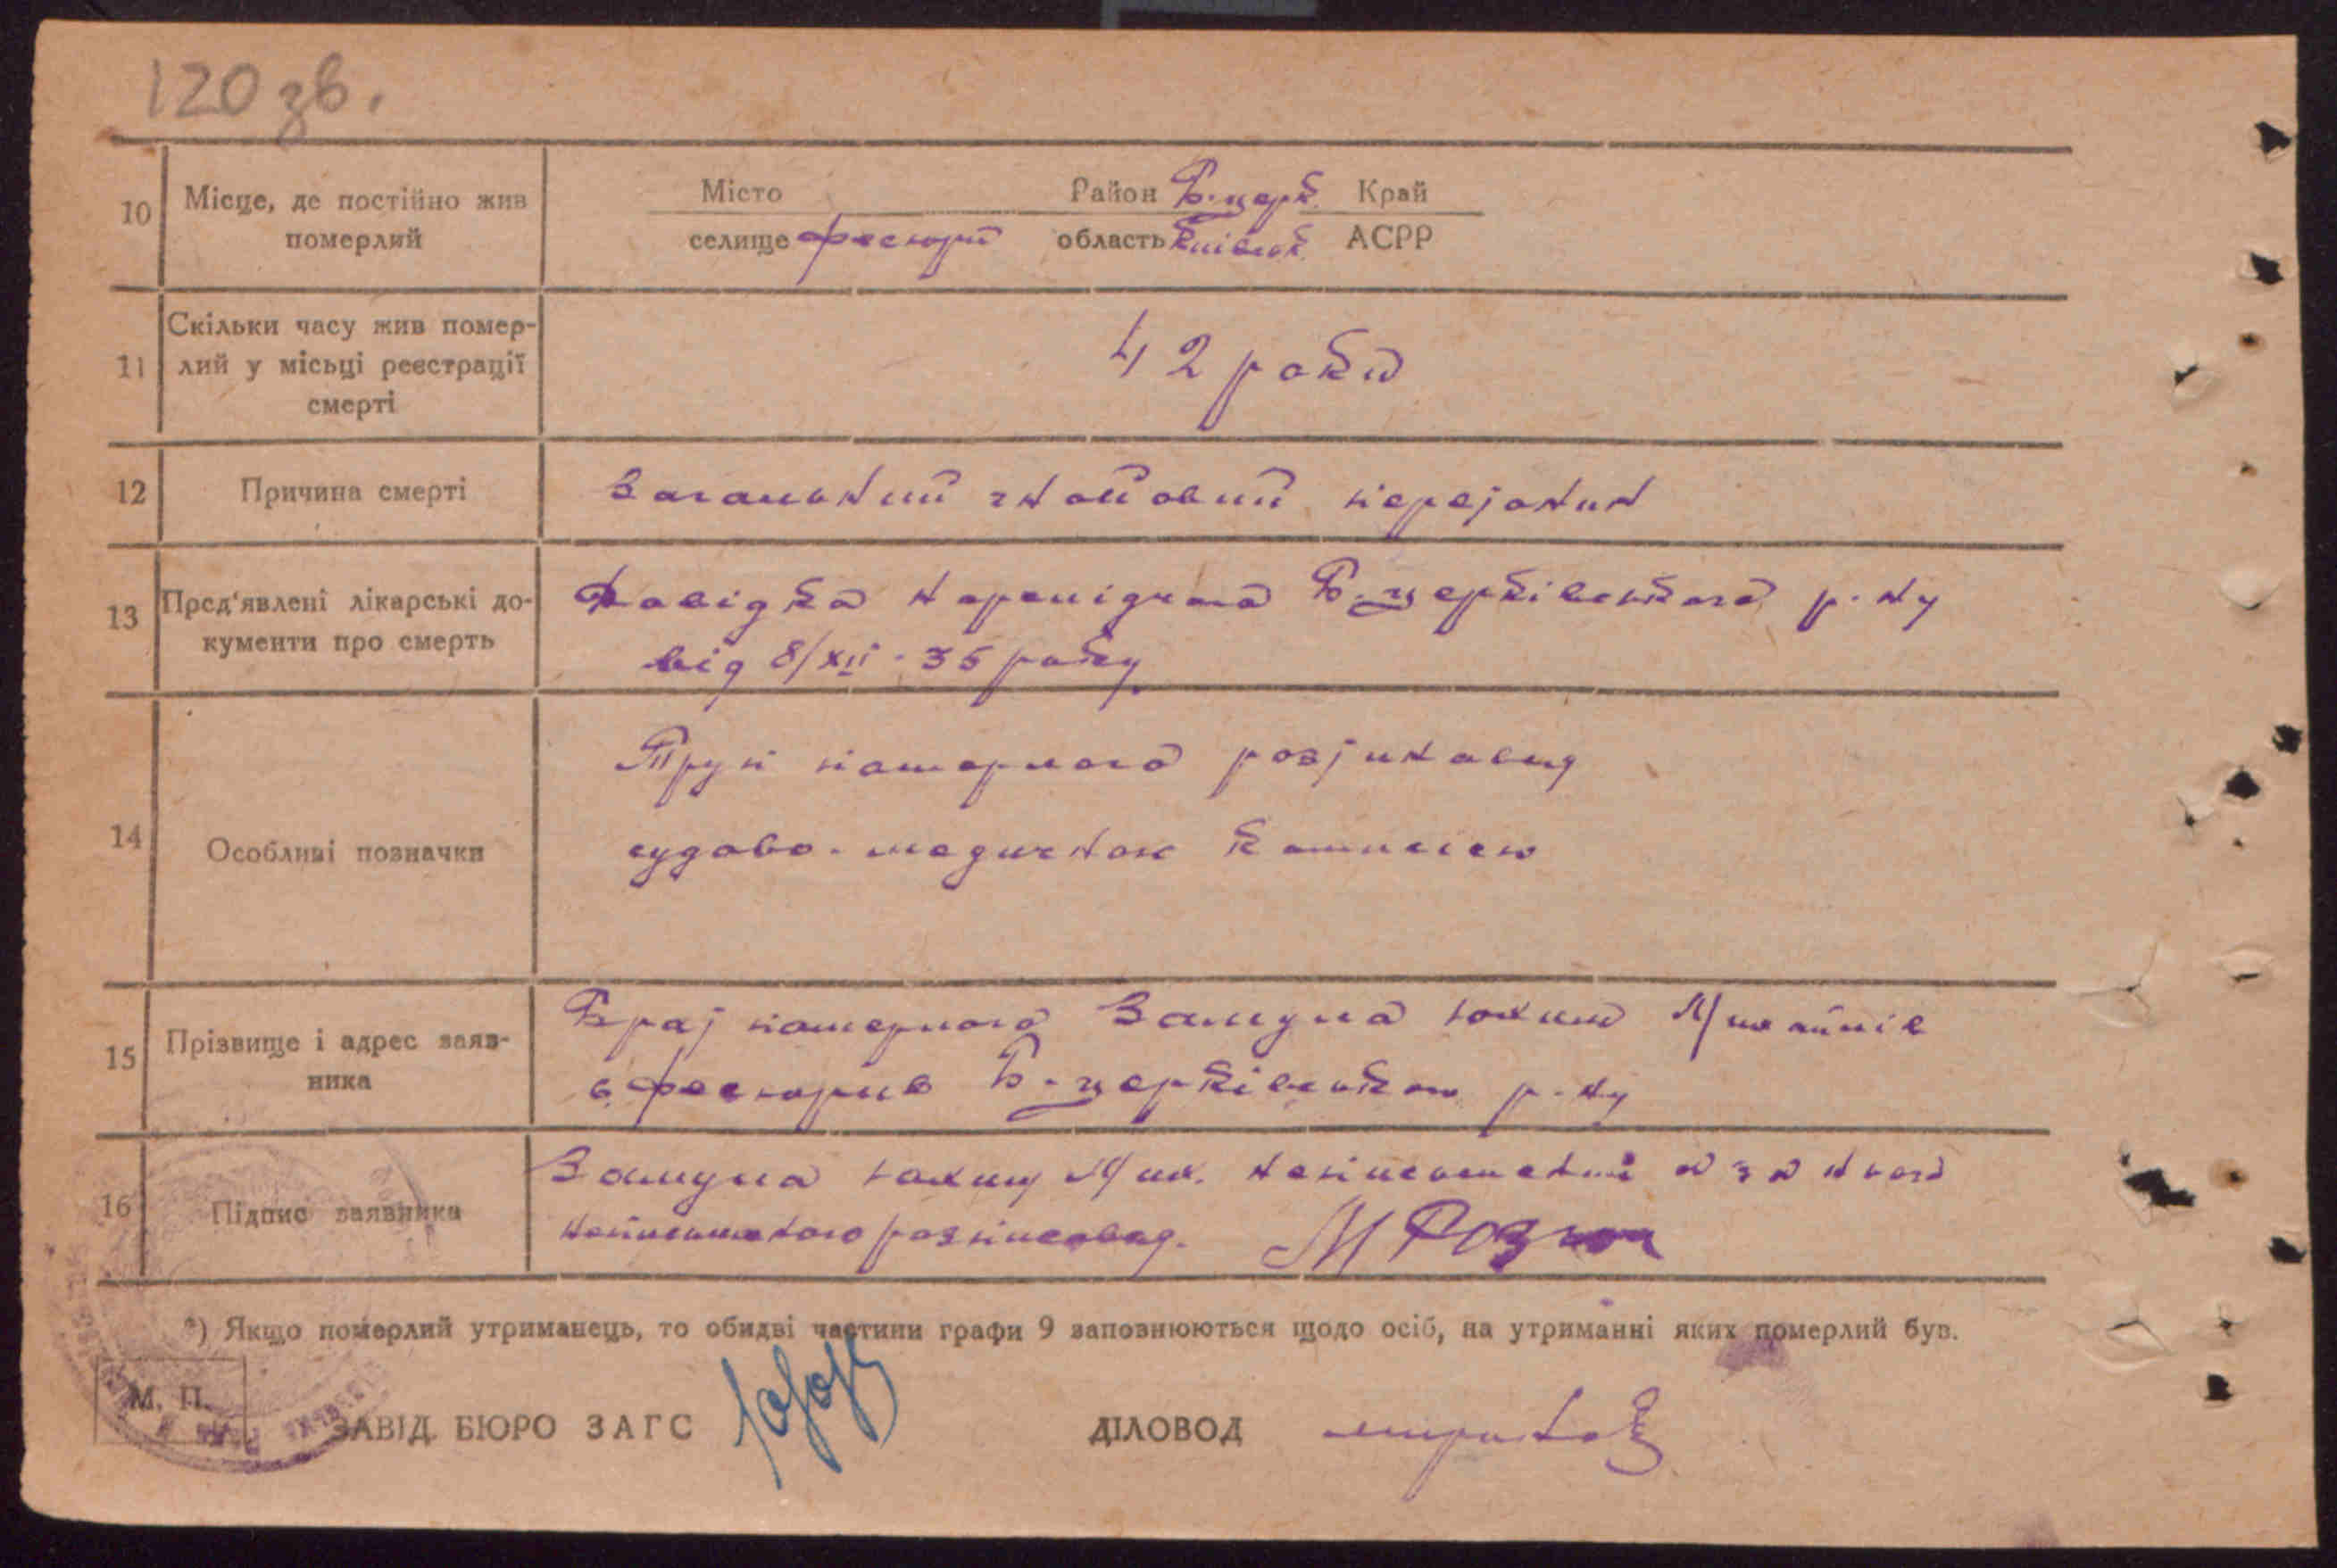 120 зв.
10 Місце, де постійно жив померлий
Місто Район Б.церк. Край
селище Фесюри область Київськ. АСРР
11 Скільки часу жив помер-
лий у місьці реєстрації
смерті
42 роки
12 Причина смерті
Загальний гнойовий перетонит
13 Пред'явлені лікарські до-
кументи про смерть
Довідка Б.церківського р-ну
від 8/XII-35 року
14 Особливі позначки
Труп померлого розтинався
судово-медичною комісією
15 Прізвище і адрес заяв-
ника
Брат померлого Юхим Михайлів
с Фесюрив Б-церківського р-ну
16 Підпис заявника
Юхим Мих. неписьменний а за нього
розписався.
*) Якщо померлий утриманець, то обидві частини графи 9 заповнюються щодо осіб, на утриманні яких померлий був.
М. П.
ЗАВІД. БЮРО ЗАГС
ДІЛОВОД